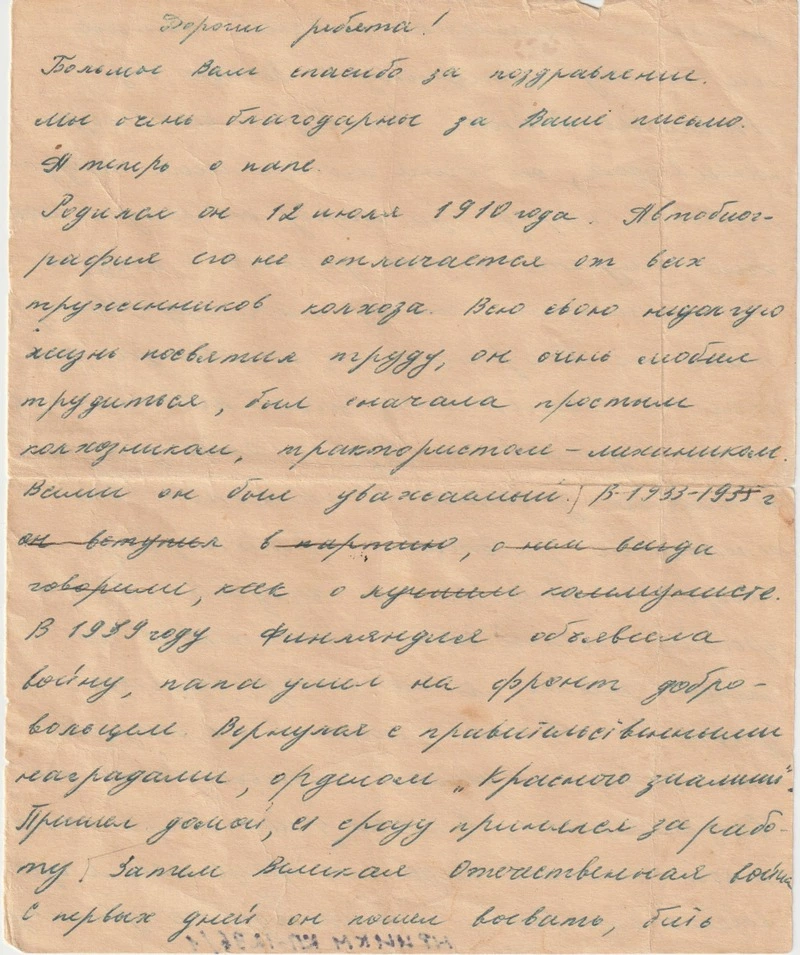 Дорогие ребята!
Большое Вам спасибо за поздравление.
Мы очень благодарны за Ваше письмо.
А теперь о папе.
Родился он 12 июля 1910 года. Автобиог-
рафия его не отличается от всех
тружеников колхоза. Всю свою недолгую
жизнь посвятил труду, он очень любил
трудиться, был сначала простым
колхозником, трактористом – механиком.
Всеми он был уважаемый. В 1933-1935 г
он вступил в партию, о нем всегда
говорили, как о лучшем коммунисте.
В 1939 году Финляндия объявила
войну, папа ушел на фронт добро-
вольцем. Вернулся с правительственными
наградами, орденом „Красного знамини".
Пришел домой, и сразу принялся за рабо-
ту Затем Великая Отечественная война
С первых дней он пошел воевать, бить